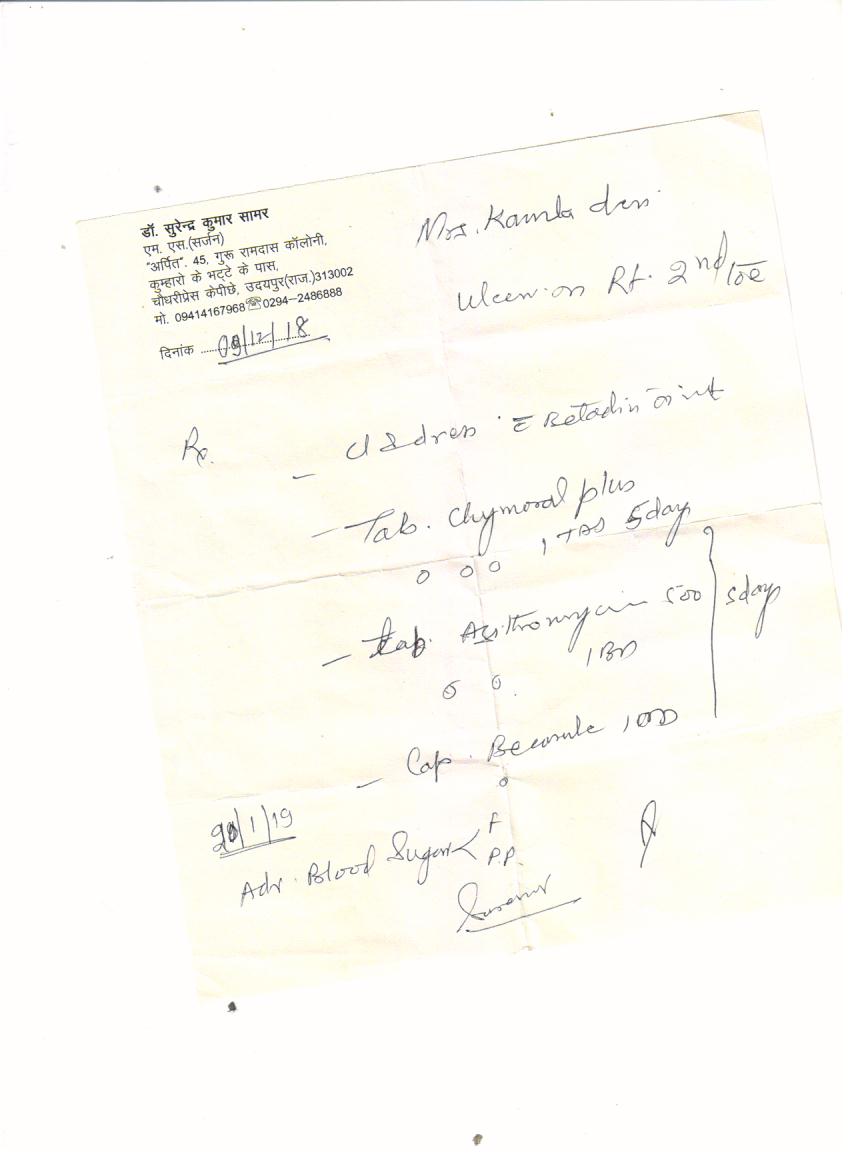 डॉ. सुरेन्द्र कुमार सामर
एम. एस.(सर्जन)
"अर्पित". 45, गुरू रामदास कॉलोनी,
कुम्हारो के भट्टे के पास,
चौधरीप्रेस केपीछे, उदयपुर(राज.)313002
मो. 09414167968☏0294-2486888
दिनांक 09/12/18
Mrs. Kamla devi
Ulcer on Rt. 2nd toe
Rx.
- dress c̄ Betadin oint
- Tab. Chymoral plus
1 TDS 5day
o o o
- Tab. Azithromycin 500
1 BD
5day
o o
- Cap. Becosule 1 OD
o
/1/19
Adv. Blood Sugar < F
P.P.